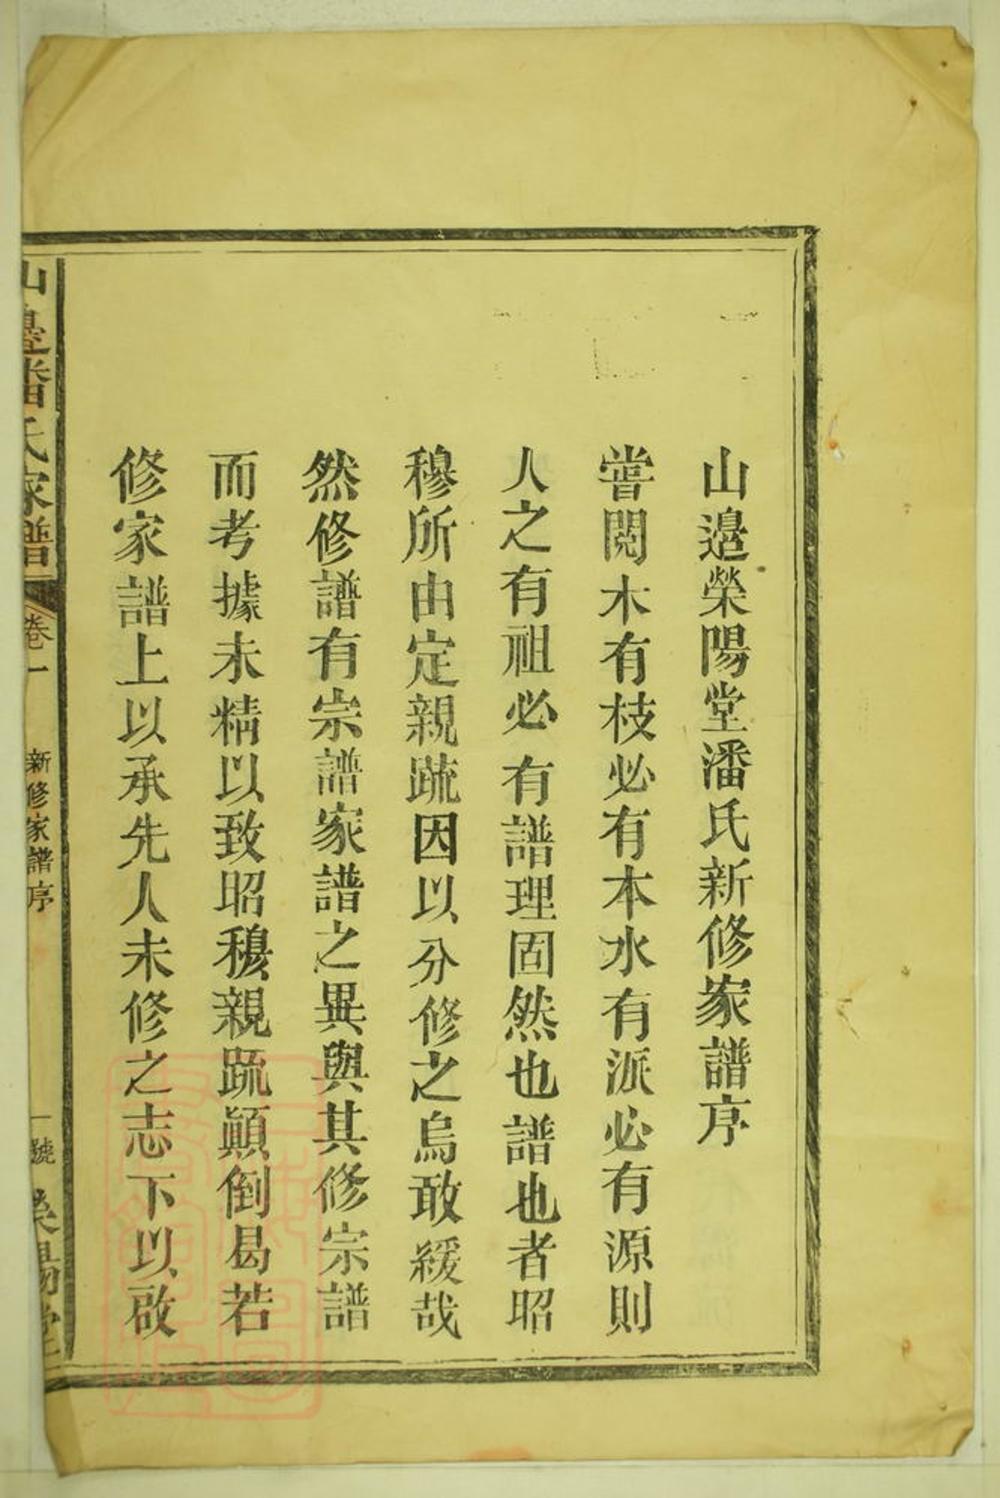 山邉榮陽堂潘氏新修家譜序
嘗閱木有枝必有本水有派必有源則
人之有祖必有譜理固然也譜也者昭
穆所由定親疏因以分修之烏敢緩哉
然修譜有宗譜家譜之異與其修宗譜
而考據未精以致昭穆親疏顚倒曷若
修家譜上以承先人未修之志下以啟
山邉潘氏家譜
卷一
新修家譜序
一號